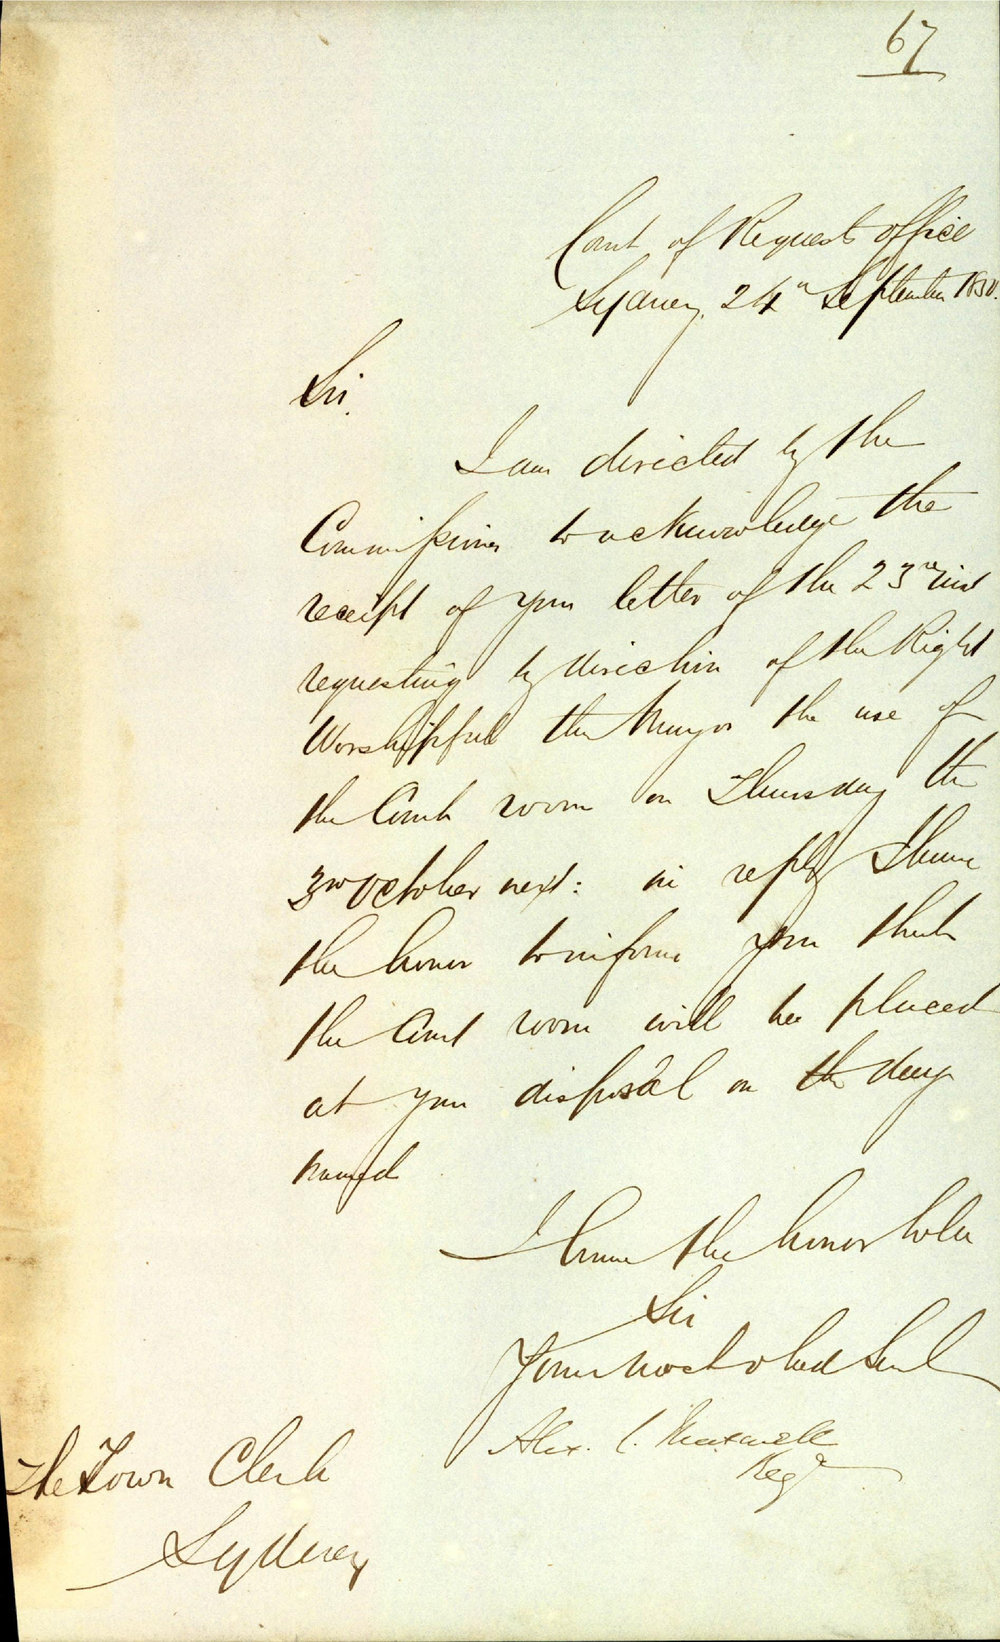 67
Court of Requests office
Sydney, 24th September 1850.
Sir,
I am directed by the
Commissioner to acknowledge the
receipt of your letter of the 23rd inst
requesting by direction of the Right
Worshipful the Mayor the use of
the Court room on Thursday the
3rd October next: in reply I have
the honor to inform you that
the Court room will be placed
at your disposal on the day
named
I have the honor to be
Sir
Your most obed Servt
Alex. C. Maxwell
Regr
The Town Clerk
Sydney